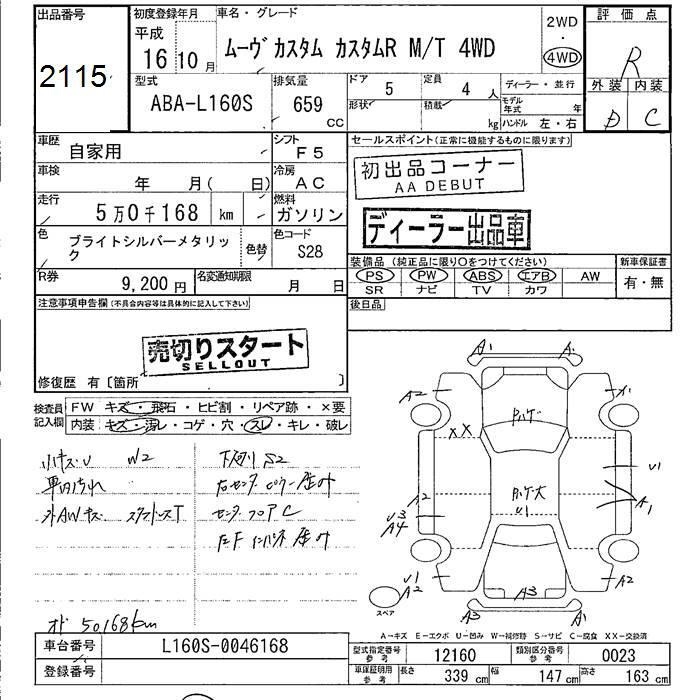 出品番号
2115
初度登録年月
平成
16 10 月
車名・グレード
ムーヴ カスタム カスタムR M/T 4WD
2WD
・
4WD
評価点
R
外装 内装
D C
型式
ABA-L160S
排気量
659
CC
ドア 5
定員 4 人
形状
積載
kg
ディーラー・並行
モデル年式 年
ハンドル 左・右
車歴
自家用
シフト
F5
車検
年 月( 日)
冷房
AC
走行
5万0千168 km
燃料
ガソリン
色
ブライトシルバーメタリック
色替
色コード
S28
R券
9,200 円
名変通知期限
月 日
セールスポイント(正常に機能するものに限ります)
初出品コーナー
AA DEBUT
ディーラー出品車
装備品(純正品に限り○をつけてください)
PS PW ABS エアB AW
SR ナビ TV カワ
新車保証書
有・無
後日品
注意事項申告欄(不具合内容等は具体的に記入して下さい)
売切りスタート
SELLOUT
修復歴 有〔箇所 〕
検査員記入欄
FW キズ・飛石・ヒビ割・リペア跡・×要
内装 キズ・汚レ・コゲ・穴・スレ・キレ・破レ
W2
下廻り S2
オド 50168km
A1 A1
A2
XX
U1
A2
U3
A4
A1
U1
A2
A3
A2
A3 A1
スペア
A−キズ E−エクボ U−凹み W−補修跡 S−サビ C−腐食 XX−交換済
車台番号
L160S-0046168
登録番号
型式指定番号
参考
12160
類別区分番号
参考
0023
車庫証明用
参考
長さ 339 cm
幅 147 cm
高さ 163 cm